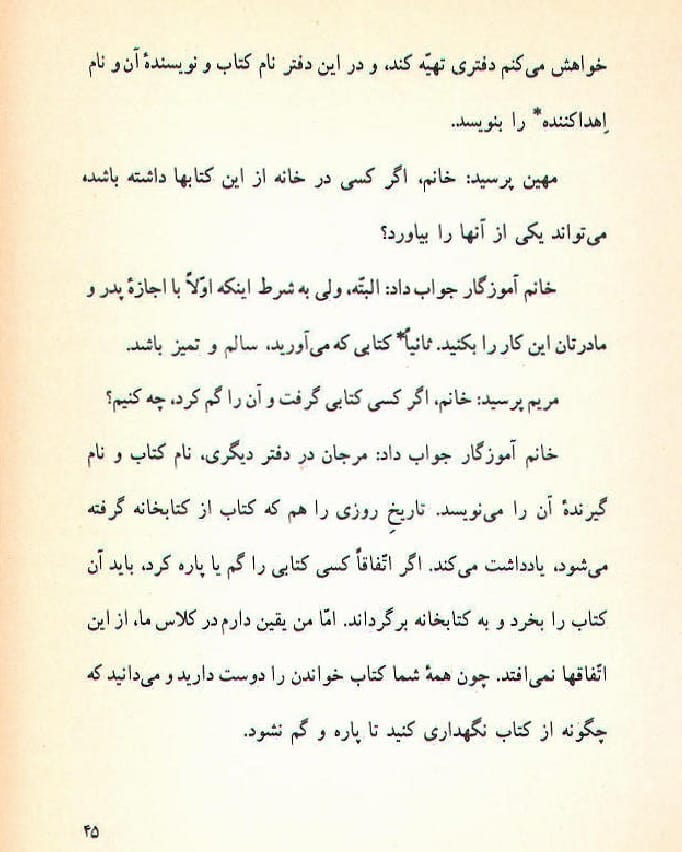 خواهش می‌کنم دفتری تهیّه کند، و در این دفتر نام کتاب و نویسندهٔ آن و نام
اِهداکننده* را بنویسد.
مهین پرسید: خانم، اگر کسی در خانه از این کتابها داشته باشد،
می‌تواند یکی از آنها را بیاورد؟
خانم آموزگار جواب داد: البتّه، ولی به شرط اینکه اوّلاً با اجازهٔ پدر و
مادرتان این کار را بکنید. ثانیاً* کتابی که می‌آورید، سالم و تمیز باشد.
مریم پرسید: خانم، اگر کسی کتابی گرفت و آن را گم کرد، چه کنیم؟
خانم آموزگار جواب داد: مرجان در دفتر دیگری، نام کتاب و نام
گیرندهٔ آن را می‌نویسد. تاریخِ روزی را هم که کتاب از کتابخانه گرفته
می‌شود، یادداشت می‌کند. اگر اتّفاقاً کسی کتابی را گم یا پاره کرد، باید آن
کتاب را بخرد و به کتابخانه برگرداند. امّا من یقین دارم در کلاس ما، از این
اتّفاقها نمی‌افتد. چون همهٔ شما کتاب خواندن را دوست دارید و می‌دانید که
چگونه از کتاب نگهداری کنید تا پاره و گم نشود.
۴۵